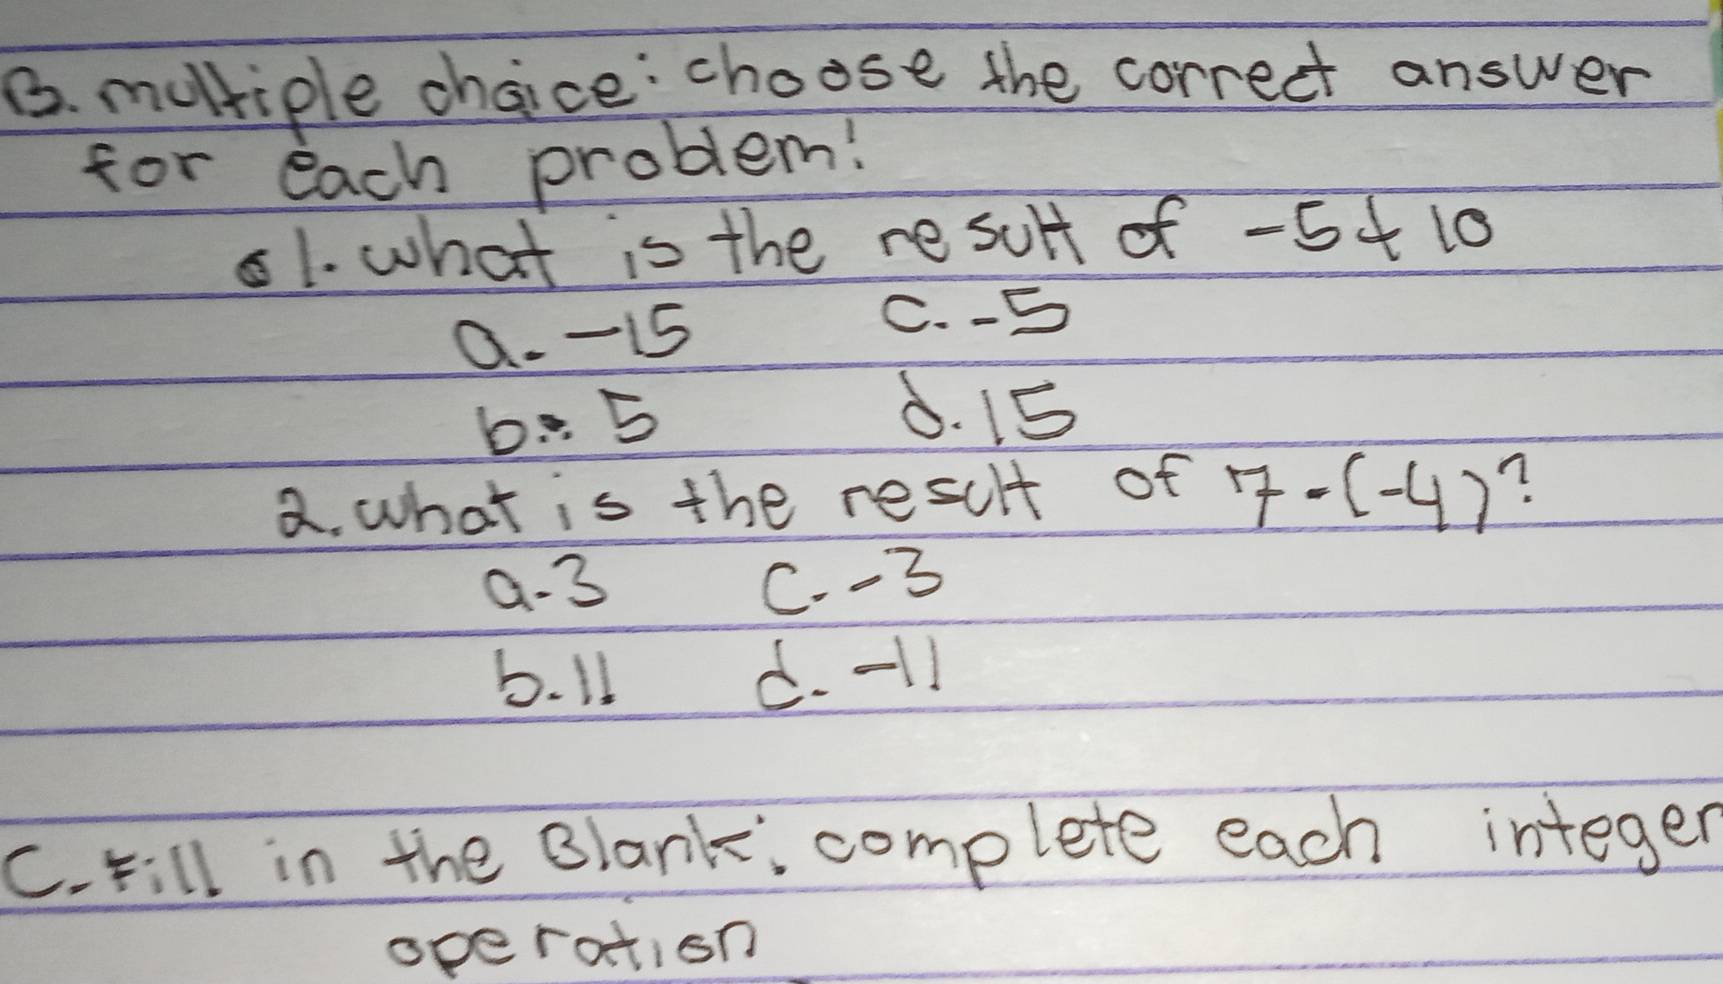 B. multiple choice: choose the correct answer
for each problem!
1. what is the result of -5 + 10
a. -15 c. -5
b. 5 d. 15
2. what is the result of 7 - (-4)?
a. 3 c. -3
b. 11 d. -11
C. Fill in the Blank: complete each integer
operation